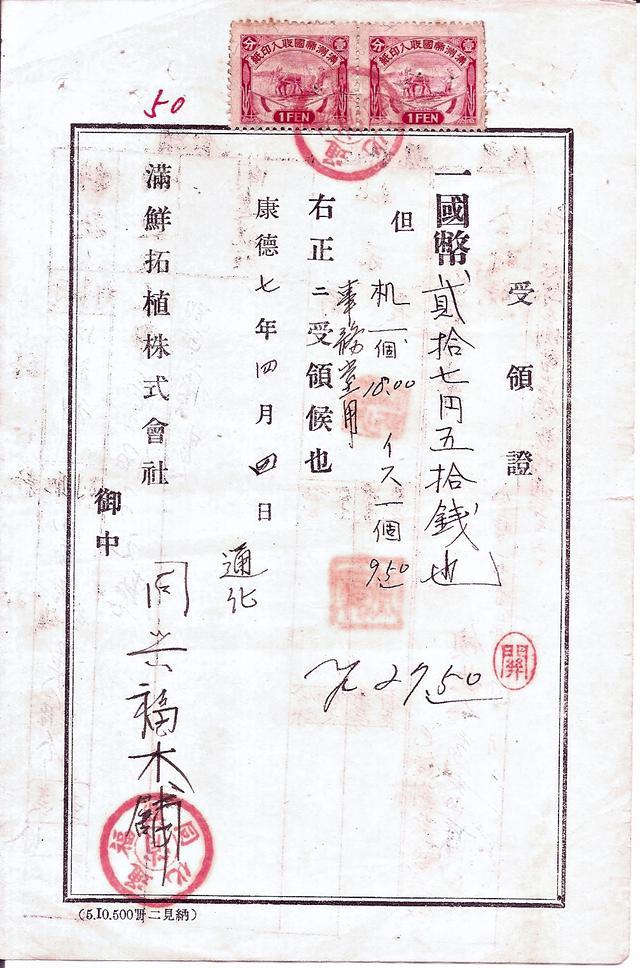 滿洲帝國收入印紙
壹分
1 FEN
滿洲帝國收入印紙
壹分
1 FEN
50
受領證
一國幣貳拾七円五拾錢也
但 机一個 18.00 イス一個 9.50
事務室用
27.50
右正ニ受領候也
康德七年四月四日
通化
滿鮮拓植株式會社 御中
同
福木舖
(5.10.500冊二見納)